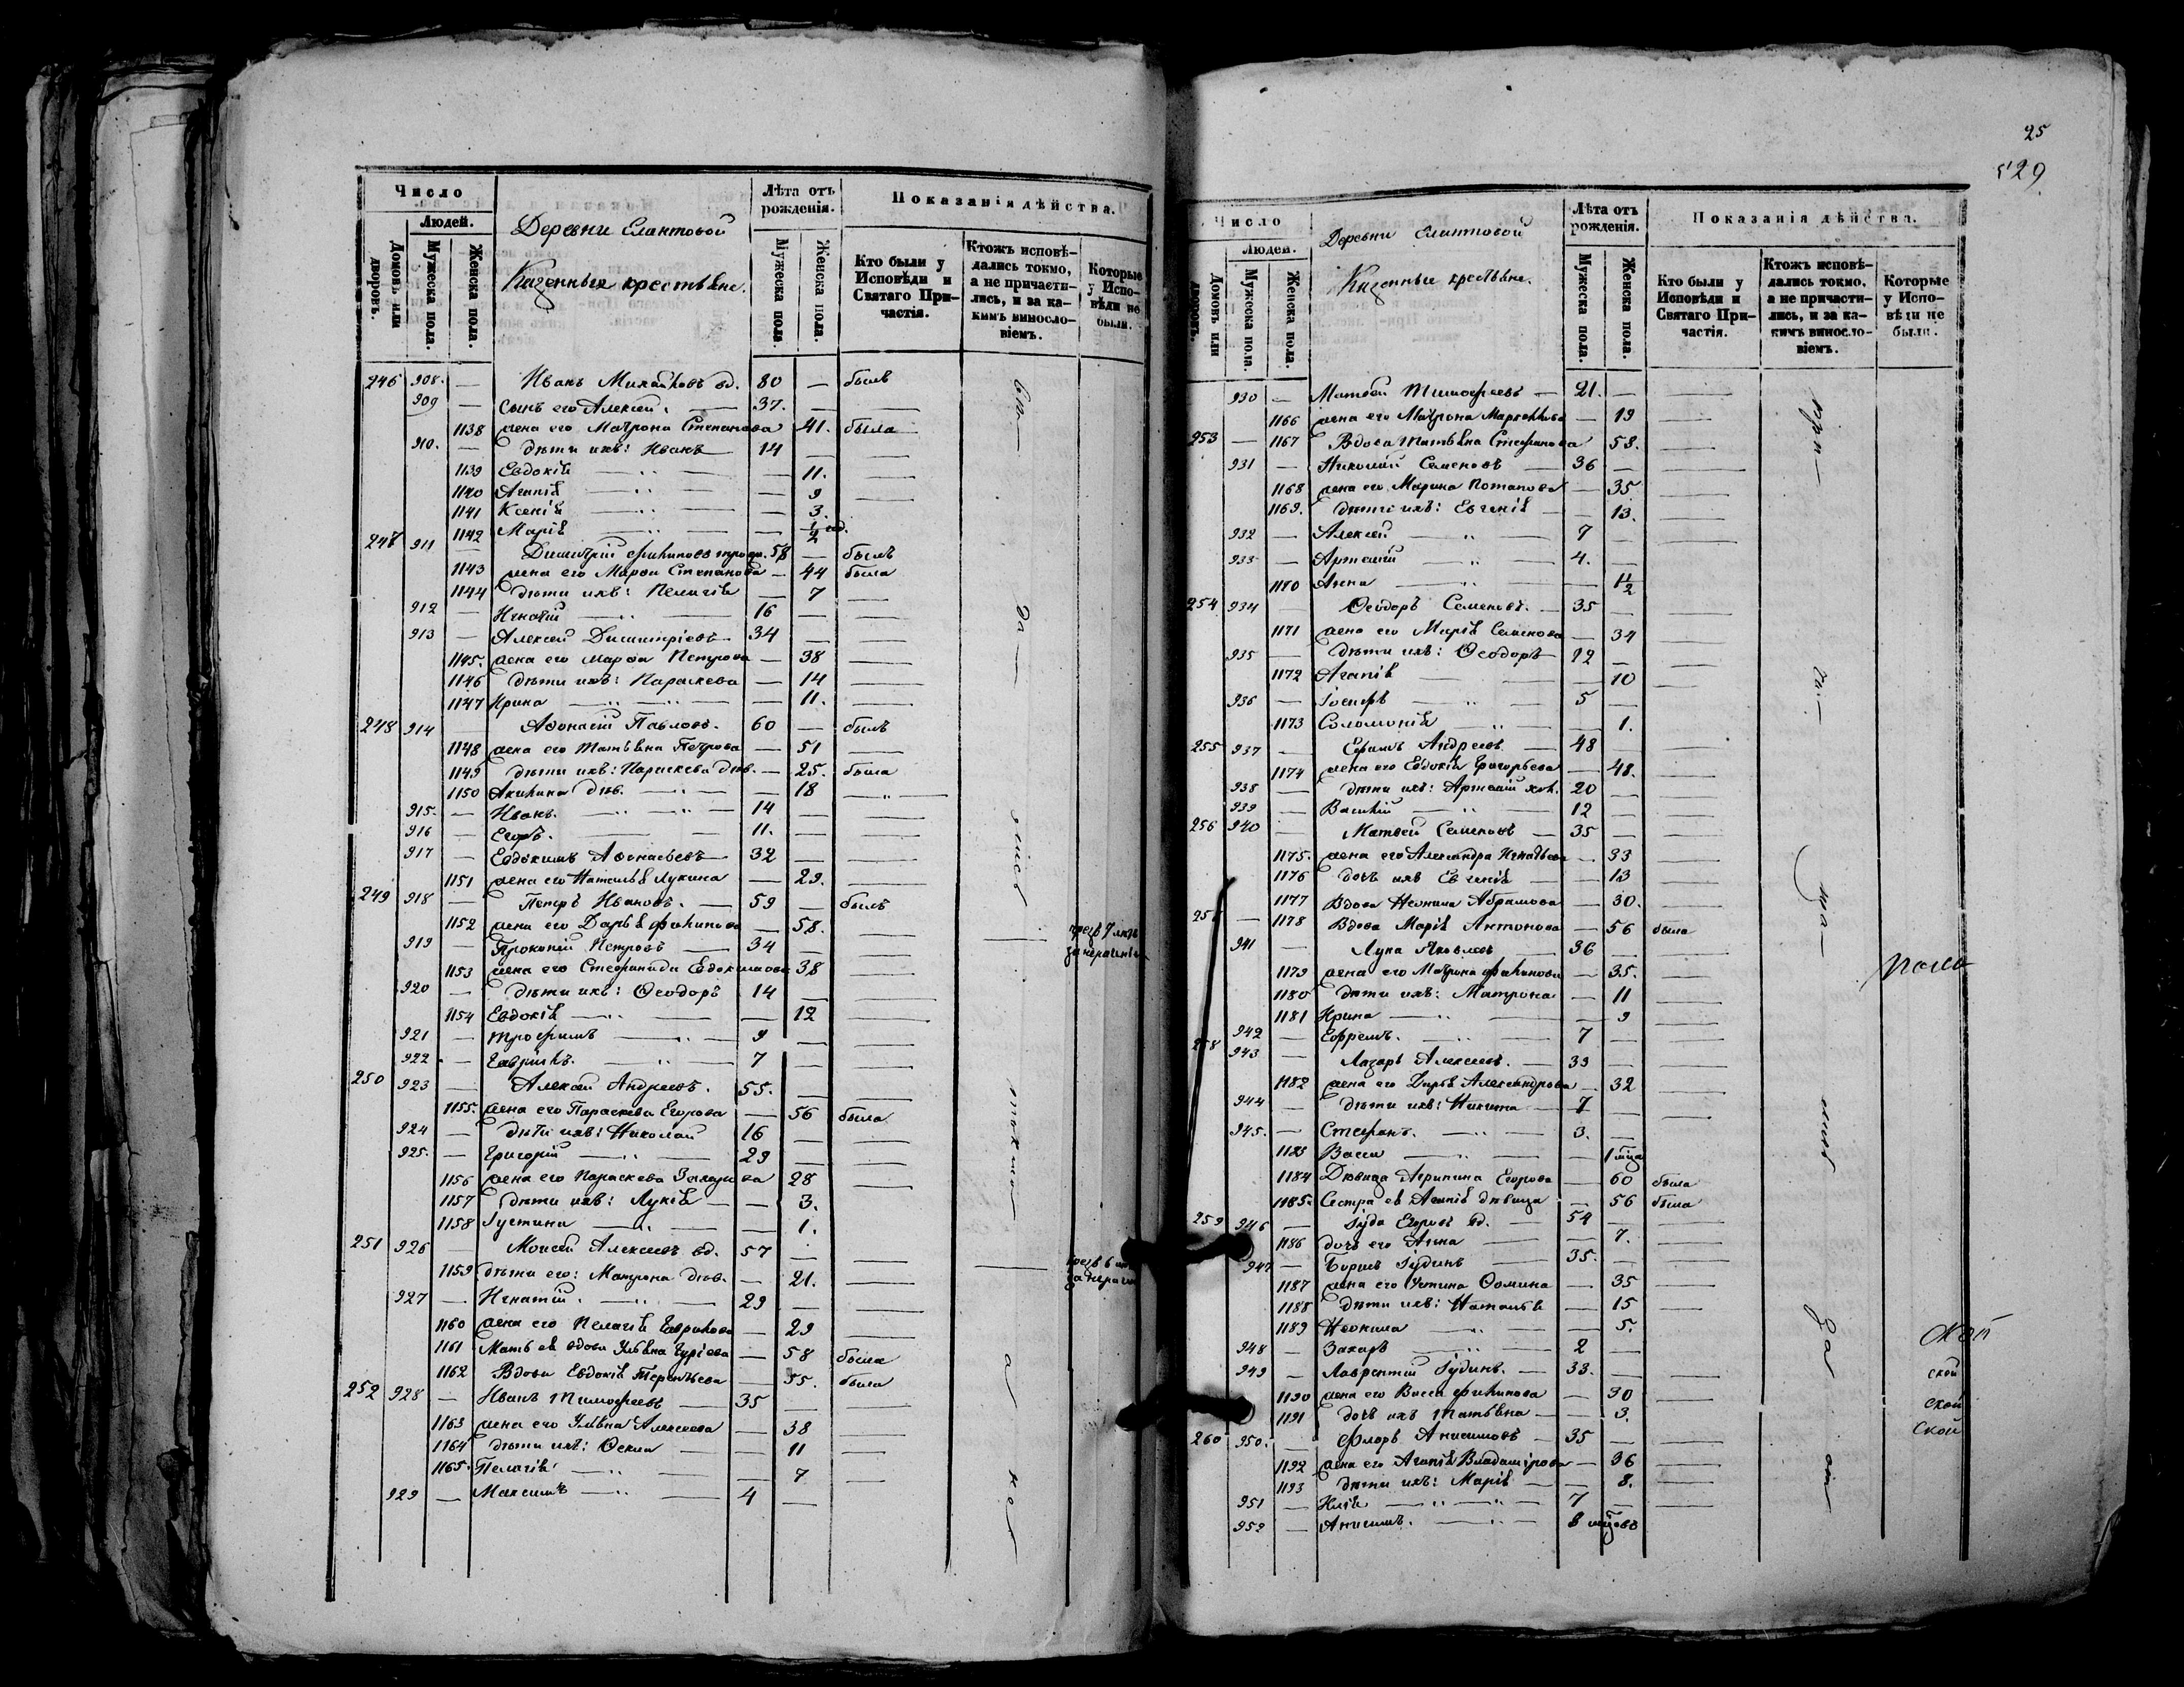 Число
Людей.
Домовъ или дворовъ.
Мужеска пола.
Женска пола.
Деревни Елантовой
Казенные крестьяне.
Лѣта отъ рожденія.
Мужеска пола.
Женска пола.
Показанія дѣйства.
Кто были у Исповѣди и Святаго Причастія.
Ктожъ исповѣдались токмо, а не причастились, и за какимъ винословіемъ.
Которые у Исповѣди не были.
246 908. — Иванъ Михайловъ вд. 80 — былъ
909 — Сынъ его Алексей. — 37. —
1138 жена его Матрона Степанова 41. была
910. — дѣти ихъ: Иванъ 14 —
1139 Евдокія — 11.
1140 Агапія — 9
1141 Ксенія — 3.
1142 Марія — 1/2 год.
247 911 — Димитрій Филиповъ 58 — былъ
1143 жена его Марѳа Степанова — 44 была
1144 дѣти ихъ: Пелагія — 7
912 — Игнатій 16 —
913 — Алексей Димитріевъ 34 —
1145. жена его Марѳа Петрова — 38
1146 дѣти ихъ: Параскева — 14
1147 Ирина — 11.
248 914 Аѳонасій Павловъ. 60 — былъ
1148 жена его Татьяна Петрова — 51
1149 дѣти ихъ: Параскева дѣв. — 25. была
1150 Акилина дѣв. — 18
915. — Иванъ. 14 —
916 — Егоръ. 11. —
917 — Евдокимъ Аѳонасьевъ 32 —
1151 жена его Наталья Лукина — 29.
249 918 — Петръ Ивановъ. 59 — былъ
1152 жена его Дарья Филипова — 58.
919 — Прокопій Петровъ 34 —
1153 жена его Стефанида Евдокимова 38
920 — дѣти ихъ: Ѳеодоръ 14 —
1154 Евдокія — 12
921 — Трофимъ 9 —
922 — Гаврилъ. 7 —
250 923 — Алексей Андреевъ. 55. —
1155. жена его Параскева Егорова — 56 была
924 — дѣти ихъ: Николай 16 —
925. — Григорій 29 —
1156 жена его Параскева 28
1157 дѣти ихъ: Лукія — 3.
1158 Іустина — 1.
251 926 — Моисей Алексеевъ вд. 57 —
1159 дѣти его: Матрона дѣв. — 21.
927 — Игнатій. 29 —
1160 жена его Пелагія Гаврилова — 29
1161 Мать ея вдова Ульяна Гуріева — 58 была
1162 Вдова Евдокія Терентьева — 55. была
252 928 — Иванъ Тимофеевъ 35 —
1163 жена его Ульяна Алексеева — 38
1164 дѣти ихъ: Ѳекла — 11
1165. Пелагія — 7
929 — Максимъ 4 —
25
529.
Число
Людей.
Домовъ или дворовъ.
Мужеска пола.
Женска пола.
Деревни Елантовой
Казенные крестьяне.
Лѣта отъ рожденія.
Мужеска пола.
Женска пола.
Показанія дѣйства.
Кто были у Исповѣди и Святаго Причастія.
Ктожъ исповѣдались токмо, а не причастились, и за какимъ винословіемъ.
Которые у Исповѣди не были.
930 — Матвей Тимофеевъ — 21. —
1166 жена его Матрона — 19
253 — 1167 Вдова Татьяна Стефанова 58.
931 — Николай Семеновъ 36 —
1168 жена его Марина Потапова — 35
1169. дѣти ихъ: Евгенія — 13.
932 — Алексей 7 —
933 — Артемій 4. —
1170 Анна — 1/2
254 934 — Ѳеодоръ Семеновъ. 35 —
1171 жена его Марія Семенова — 34
935 — дѣти ихъ: Ѳеодоръ 12 —
1172 Агапія — 10
936 — Іосифъ 5 —
1173 Соломонія — 1.
255 937 — Ефимъ Андреевъ 48 —
1174 жена его Евдокія Григорьева — 48.
938 — дѣти ихъ: Артемій хол. 20 —
939 — Василій 12 —
256 940 — Матвей Семеновъ 35 —
1175. жена его Александра Игнатьева — 33
1176 дочь ихъ Евгенія — 13
1177 Вдова Неонила Абрамова — 30.
257 — 1178 Вдова Марія Антонова — 56 была
941 — Лука Яковлевъ 36 —
1179 жена его Матрона Филипова — 35.
1180 дѣти ихъ: Матрона — 11
1181 Ирина — 9
942 — Ефремъ. 7 —
258 943 — Лазарь Алексеевъ. 33 —
1182 жена его Дарья Александрова — 32
944 — дѣти ихъ: Никита 7 —
945. — Стефанъ. 3. —
1183 Васса — 1 мѣца
1184 Дѣвица Агрипина Егорова — 60 была
1185. Сестра ея Агапія дѣвица — 56 была
259 946 — Іуда Егоровъ вд. 54 —
1186 дочь его Анна — 7.
947 — Борисъ Іудинъ 35. —
1187 жена его Устина Ѳомина — 35
1188 дѣти ихъ: Наталья — 15
1189 Неонила — 5.
948 — Захаръ 2 —
949 — Лаврентій Іудинъ. 33. —
1190 жена его Васса Филипова — 30
1191 дочь ихъ Татьяна — 3.
260 950. — Флоръ Анисимовъ 35 —
1192 жена его Агапія Владимірова — 36
1193 дѣти ихъ: Марія — 8.
951 — Илія 7 —
952 — Анисимъ. 8 мѣцовъ
ской
ской
ской